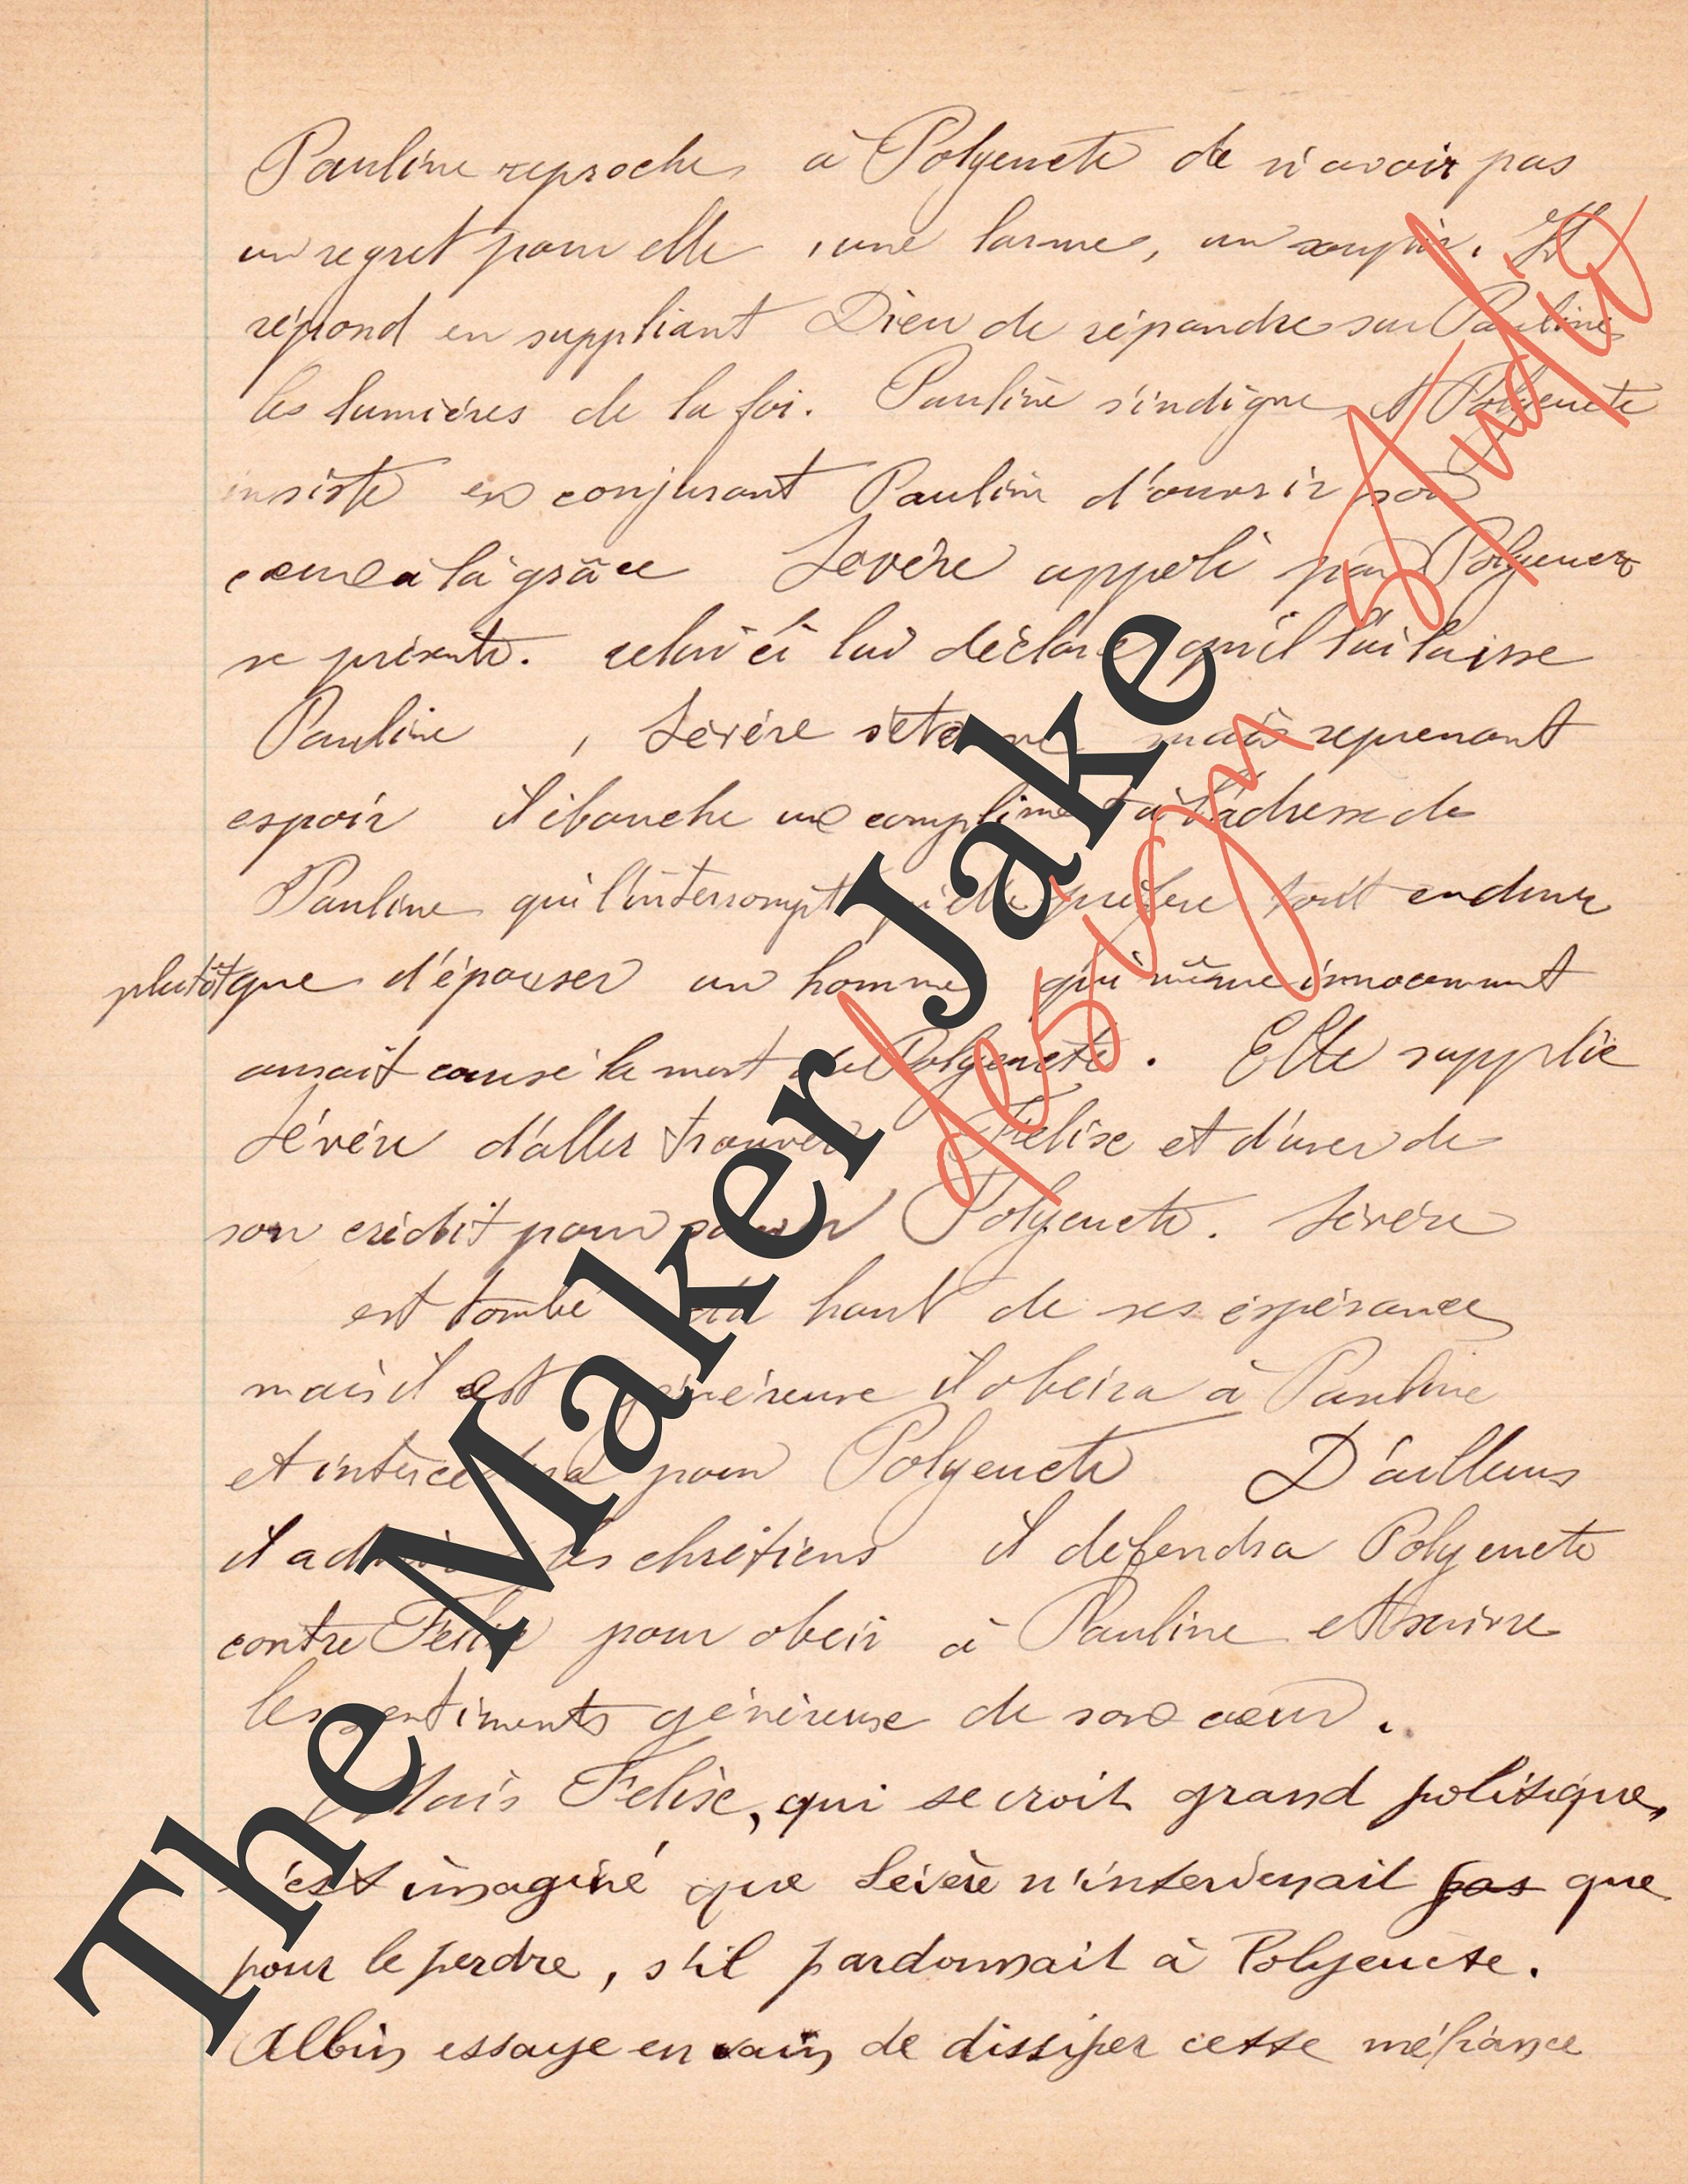 Pauline reproche à Polyeucte de n'avoir pas
un regret pour elle, une larme, un soupir. Il
répond en suppliant Dieu de répandre sur Pauline
les lumières de la foi. Pauline s'indigne et Polyeucte
insiste en conjurant Pauline d'ouvrir son
cœur à la grâce Sévère appelé par Polyeucte
se présente. celui ci lui déclare qu'il lui laisse
Pauline , Sévère s'étonne mais reprenant
espoir il ébauche un compliment à l'adresse de
Pauline qui l'interrompt qu'elle préfère tout endurer
plutôt que d'épouser un homme qui même innocemment
aurait causé la mort de Polyeucte. Elle supplie
Sévère d'aller trouver Félixe et d'user de
son crédit pour sauver Polyeucte. Sévère
est tombé du haut de ses espérances
mais il est généreuse il obeira à Pauline
et intercedera pour Polyeucte D'ailleurs
il admire les chrétiens il défendra Polyeucte
contre Felix pour obeir à Pauline et suivre
les sentiments généreuse de son cœur.
Mais Felixe, qui se croit grand politique,
s'est imaginé que Sévère n'intervenait pas que
pour le perdre, s'il pardonnait à Polyeucte.
Albin essaye en vain de dissiper cette méfiance
The Maker Jake
design studio